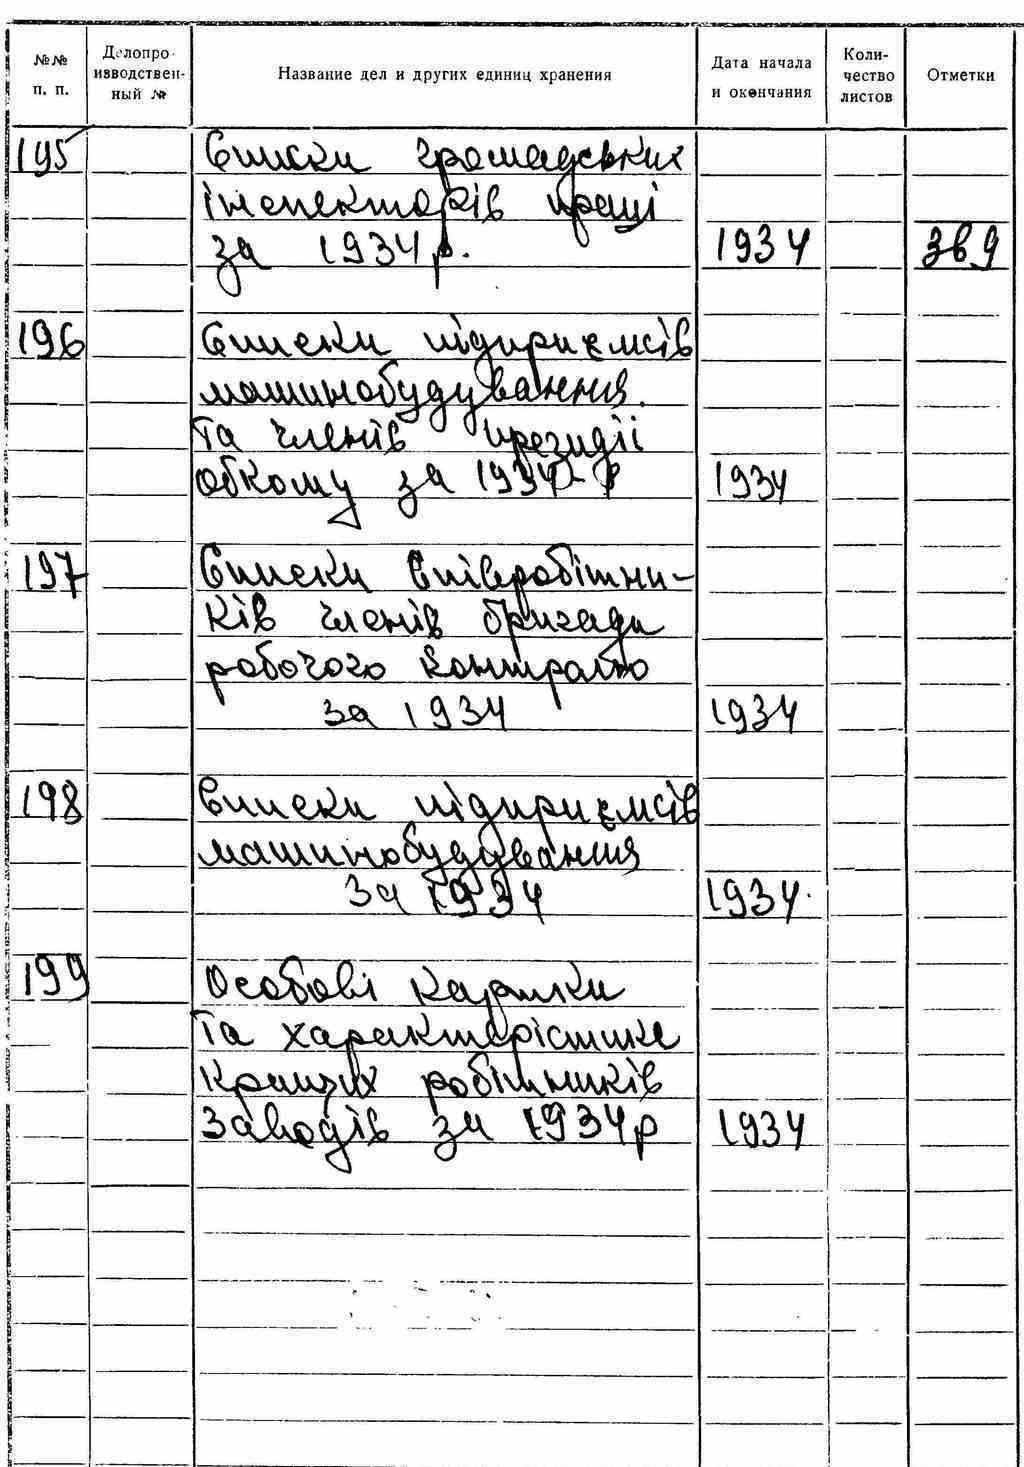 №№ п. п.
Делопроизводственный №
Название дел и других единиц хранения
Дата начала и окончания
Количество листов
Отметки
195 Списки громадських
інспекторів праці
за 1934 р. 1934
196 Списки підприємсів
машинобудування
та членів президії
обкому за 1934 - р 1934
197 Списки співробітни-
ків членів бригади
робочого контролю
за 1934 1934
198 Списки підприємсів
машинобудування
за 1934 1934
199 Особові картки
та характерістике
кращих робітників
заводів за 1934 р 1934